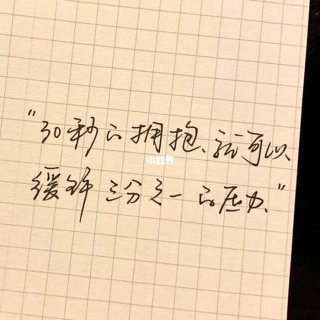 "30秒的拥抱、就可以
小红书
缓解三分之一的压力."